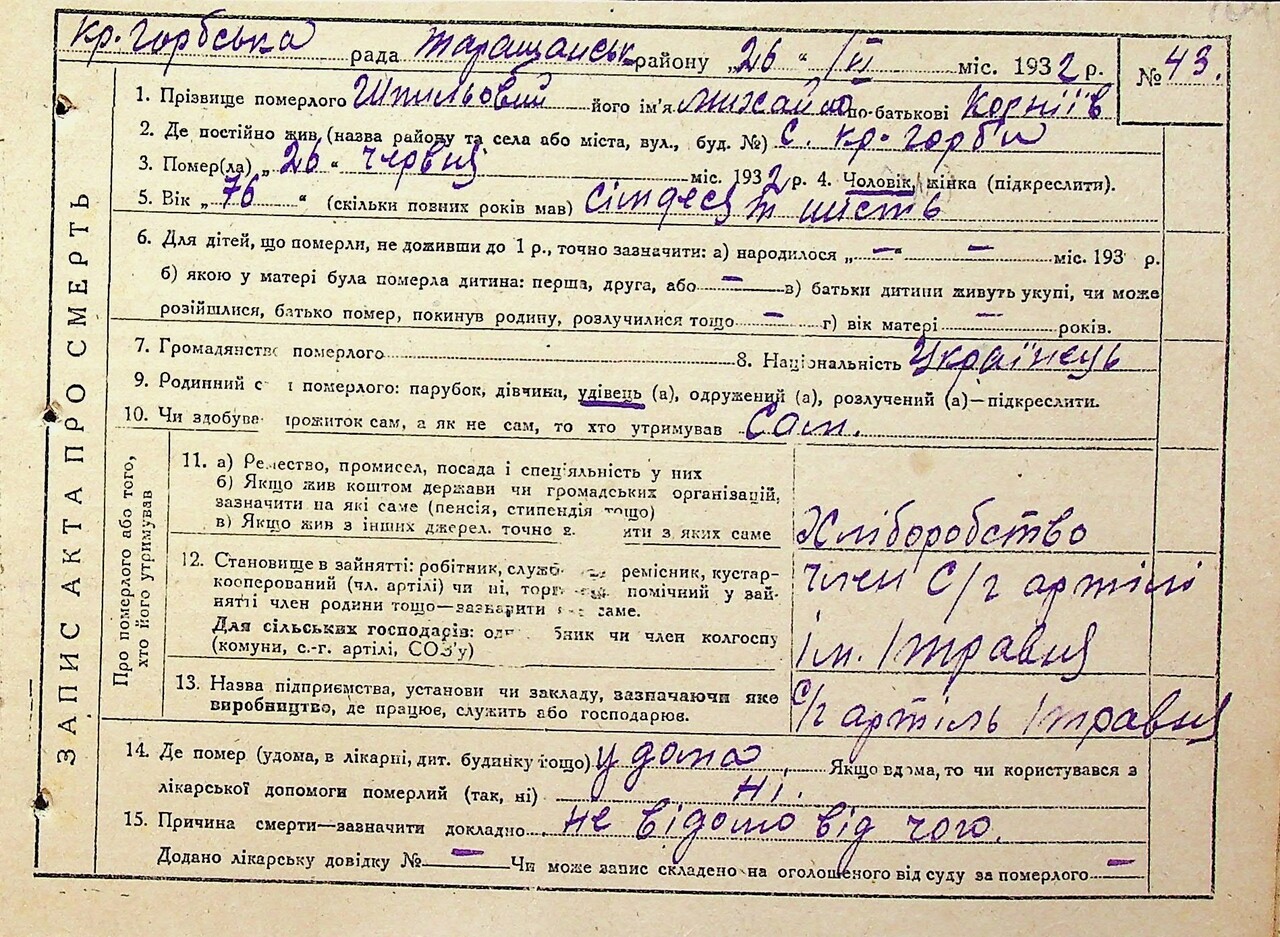 Кр. Горбська рада Таращанськ району „26“ /VI міс. 1932 р. № 43.
ЗАПИС АКТА ПРО СМЕРТЬ
1. Прізвище померлого Шпильовий його ім'я Михайло по-батькові Корніїв
2. Де постійно жив (назва району та села або міста, вул., буд. №) с. Кр-Горби
3. Помер(ла) „26“ червня міс. 1932 р. 4. Чоловік, жінка (підкреслити).
5. Вік „76“ (скільки повних років мав) сімдесят шисть
6. Для дітей, що померли, не доживши до 1 р., точно зазначити: а) народилося „ — — міс. 193 р.
б) якою у матері була померла дитина: перша, друга, або — в) батьки дитини живуть укупі, чи може
розійшлися, батько помер, покинув родину, розлучилися тощо — г) вік матері — років.
7. Громадянств померлого 8. Національність Українець
9. Родинний с і померлого: парубок, дівчина, удівець (а), одружений (а), розлучений (а)—підкреслити.
10. Чи здобува рожиток сам, а як не сам, то хто утримував Сам.
Про померлого або того,
хто його утримував
11. а) Ремество, промисел, посада і спеціяльність у них
б) Якщо жив коштом держави чи громадських організацій,
зазначити на які саме (пенсія, стипендія тощо)
в) Якщо жив з інших джерел, точно з ити з яких саме
Хліборобство
12. Становище в зайнятті: робітник, служб ремісник, кустар-
кооперований (чл. артілі) чи ні, торг помічний у зай-
нятті член родини тощо—зазначити саме.
Для сільських господарів: од бник чи член колгоспу
(комуни, с.-г. артілі, СОЗ'у)
член С/г артілі
ім. 1 травня
13. Назва підприємства, установи чи закладу, зазначаючи яке
виробництво, де працює, служить або господарює.
С/г артіль 1 травня
14. Де помер (удома, в лікарні, дит. будинку тощо) у дома Якщо вдома, то чи користувався з
лікарської допомоги померлий (так, ні) ні.
15. Причина смерти—зазначити докладно не відомо від чого.
Додано лікарську довідку № — Чи може запис складено на оголошеного від суду за померлого —